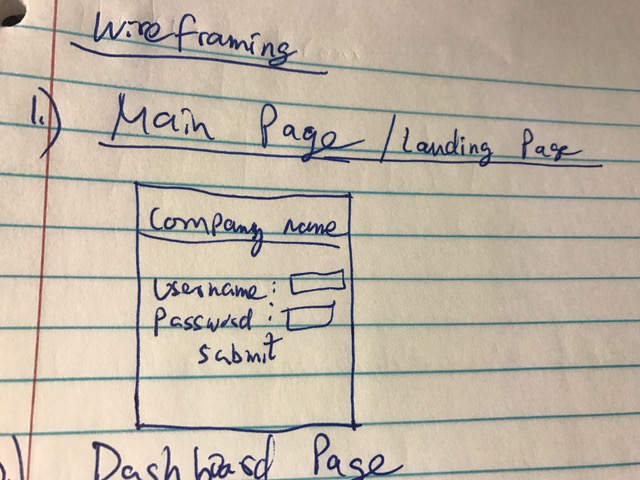 Wireframing
1.) Main Page / Landing Page
Company name
Username:
Password:
Submit
Dashboard Page